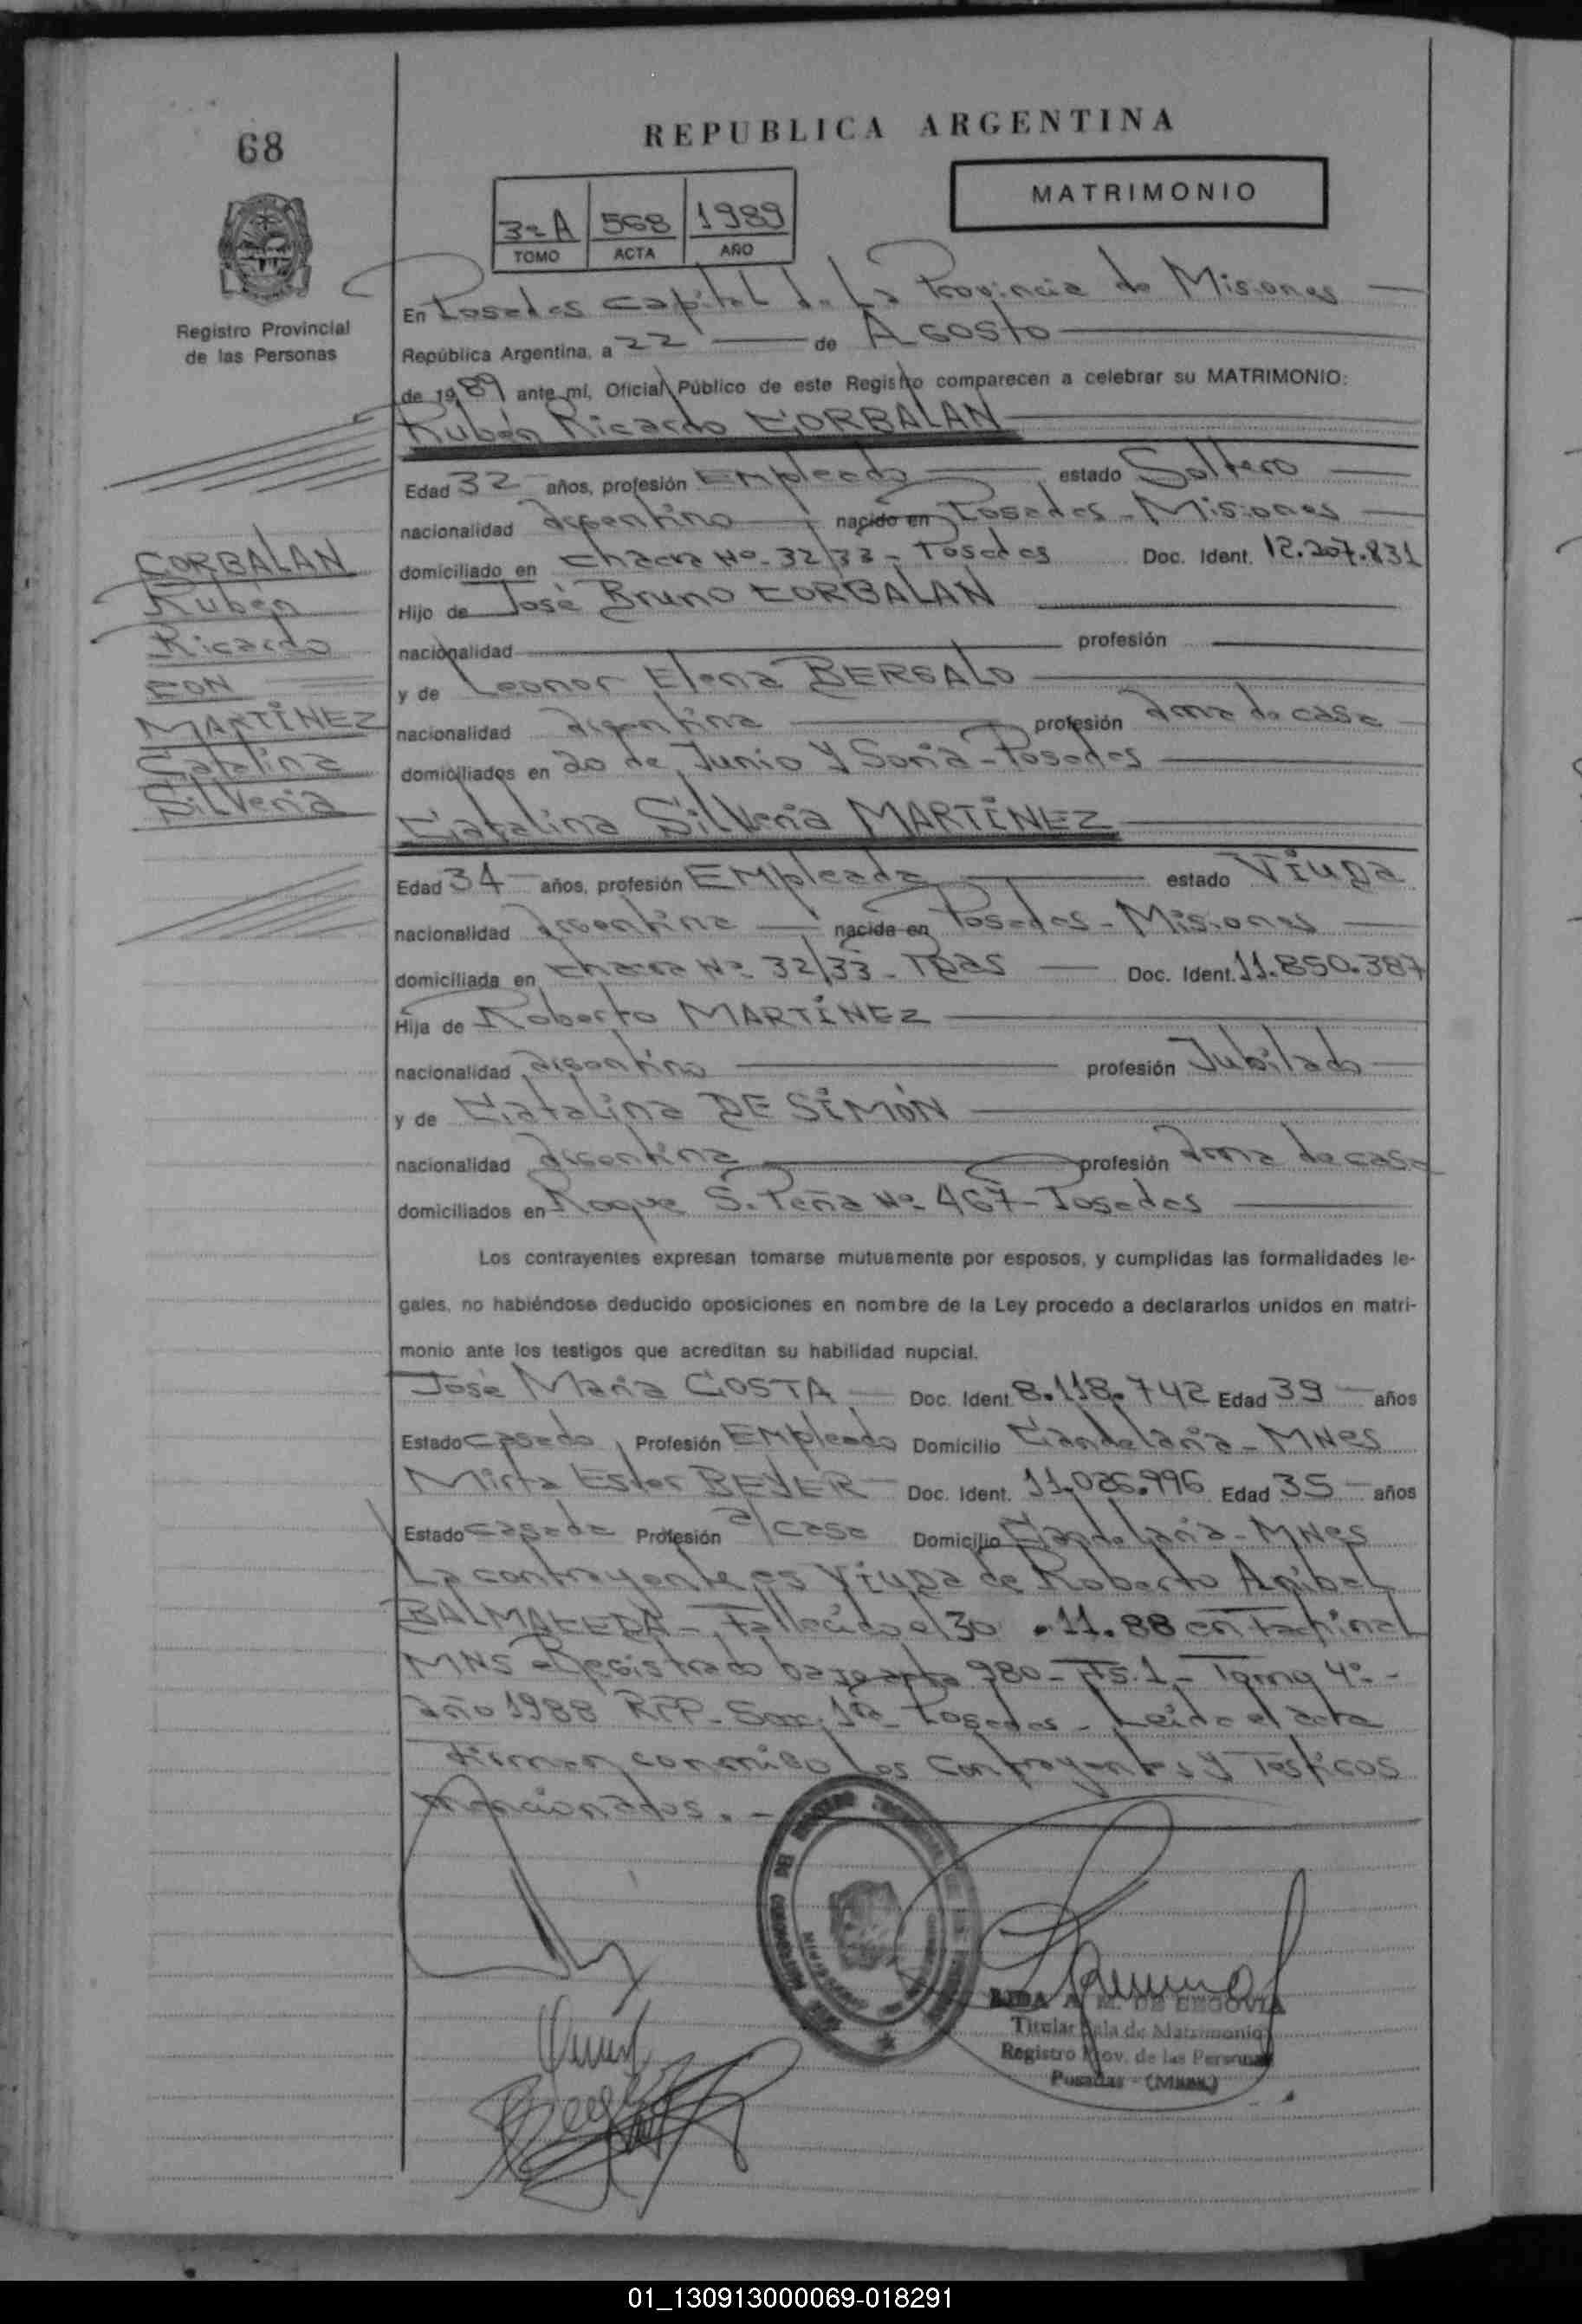 68
REPUBLICA ARGENTINA
MATRIMONIO
3º A 568 1989
TOMO ACTA AÑO
Registro Provincial
de las Personas
En Posadas capital de La Provincia de Misiones
República Argentina, a 22 de Agosto
de 1989 ante mí, Oficial Público de este Registro comparecen a celebrar su MATRIMONIO:
Rubén Ricardo CORBALAN
Edad 32 años, profesión Empleado estado Soltero
nacionalidad argentino nacido en Posadas - Misiones
domiciliado en chacra Nº 32/33 - Posadas Doc. Ident. 12.207.831
Hijo de José Bruno CORBALAN
nacionalidad profesión
y de Leonor Elena BERGALO
nacionalidad argentina profesión ama de casa
domiciliados en 20 de Junio y Soria - Posadas
CORBALAN
Rubén
Ricardo
CON
MARTÍNEZ
Catalina
Silveria
Catalina Silveria MARTÍNEZ
Edad 34 años, profesión Empleada estado Viuda
nacionalidad argentina nacida en Posadas - Misiones
domiciliada en chacra Nº 32/33 - Pdas Doc. Ident. 11.850.387
Hija de Roberto MARTÍNEZ
nacionalidad argentino profesión Jubilado
y de Catalina DE SIMÓN
nacionalidad argentina profesión ama de casa
domiciliados en Roque S. Peña Nº 467 - Posadas
Los contrayentes expresan tomarse mutuamente por esposos, y cumplidas las formalidades le-
gales, no habiéndose deducido oposiciones en nombre de la Ley procedo a declararlos unidos en matri-
monio ante los testigos que acreditan su habilidad nupcial.
José María COSTA Doc. Ident. 8.118.742 Edad 39 años
Estado casado Profesión Empleado Domicilio Candelaria - MNes
Mirta Ester BEYER Doc. Ident. 11.026.996 Edad 35 años
Estado casada Profesión a/casa Domicilio Candelaria - MNes
La contrayente es Viuda de Roberto Anibal
BALMACEDA - Fallecido el 30 . 11 . 88 en Fachinal
MNS - Registrado bajo acta 980 - Fs. 1 - Tomo 4º -
año 1988 RPP - Secc. 1ra Posadas - Leída el acta
Firman conmigo Los contrayentes y Testigos
mencionados. -
LIDA A. M. DE SEGOVIA
Titular Sala de Matrimonio
Registro Prov. de las Personas
Posadas - (Mnes.)
01_130913000069-018291